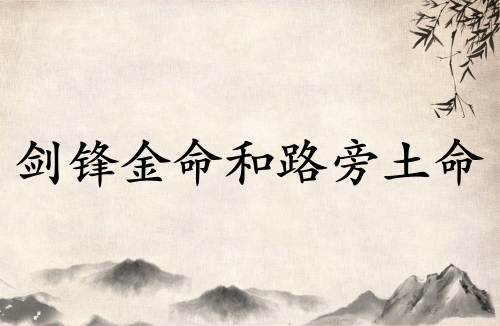 剑锋金命和路旁土命